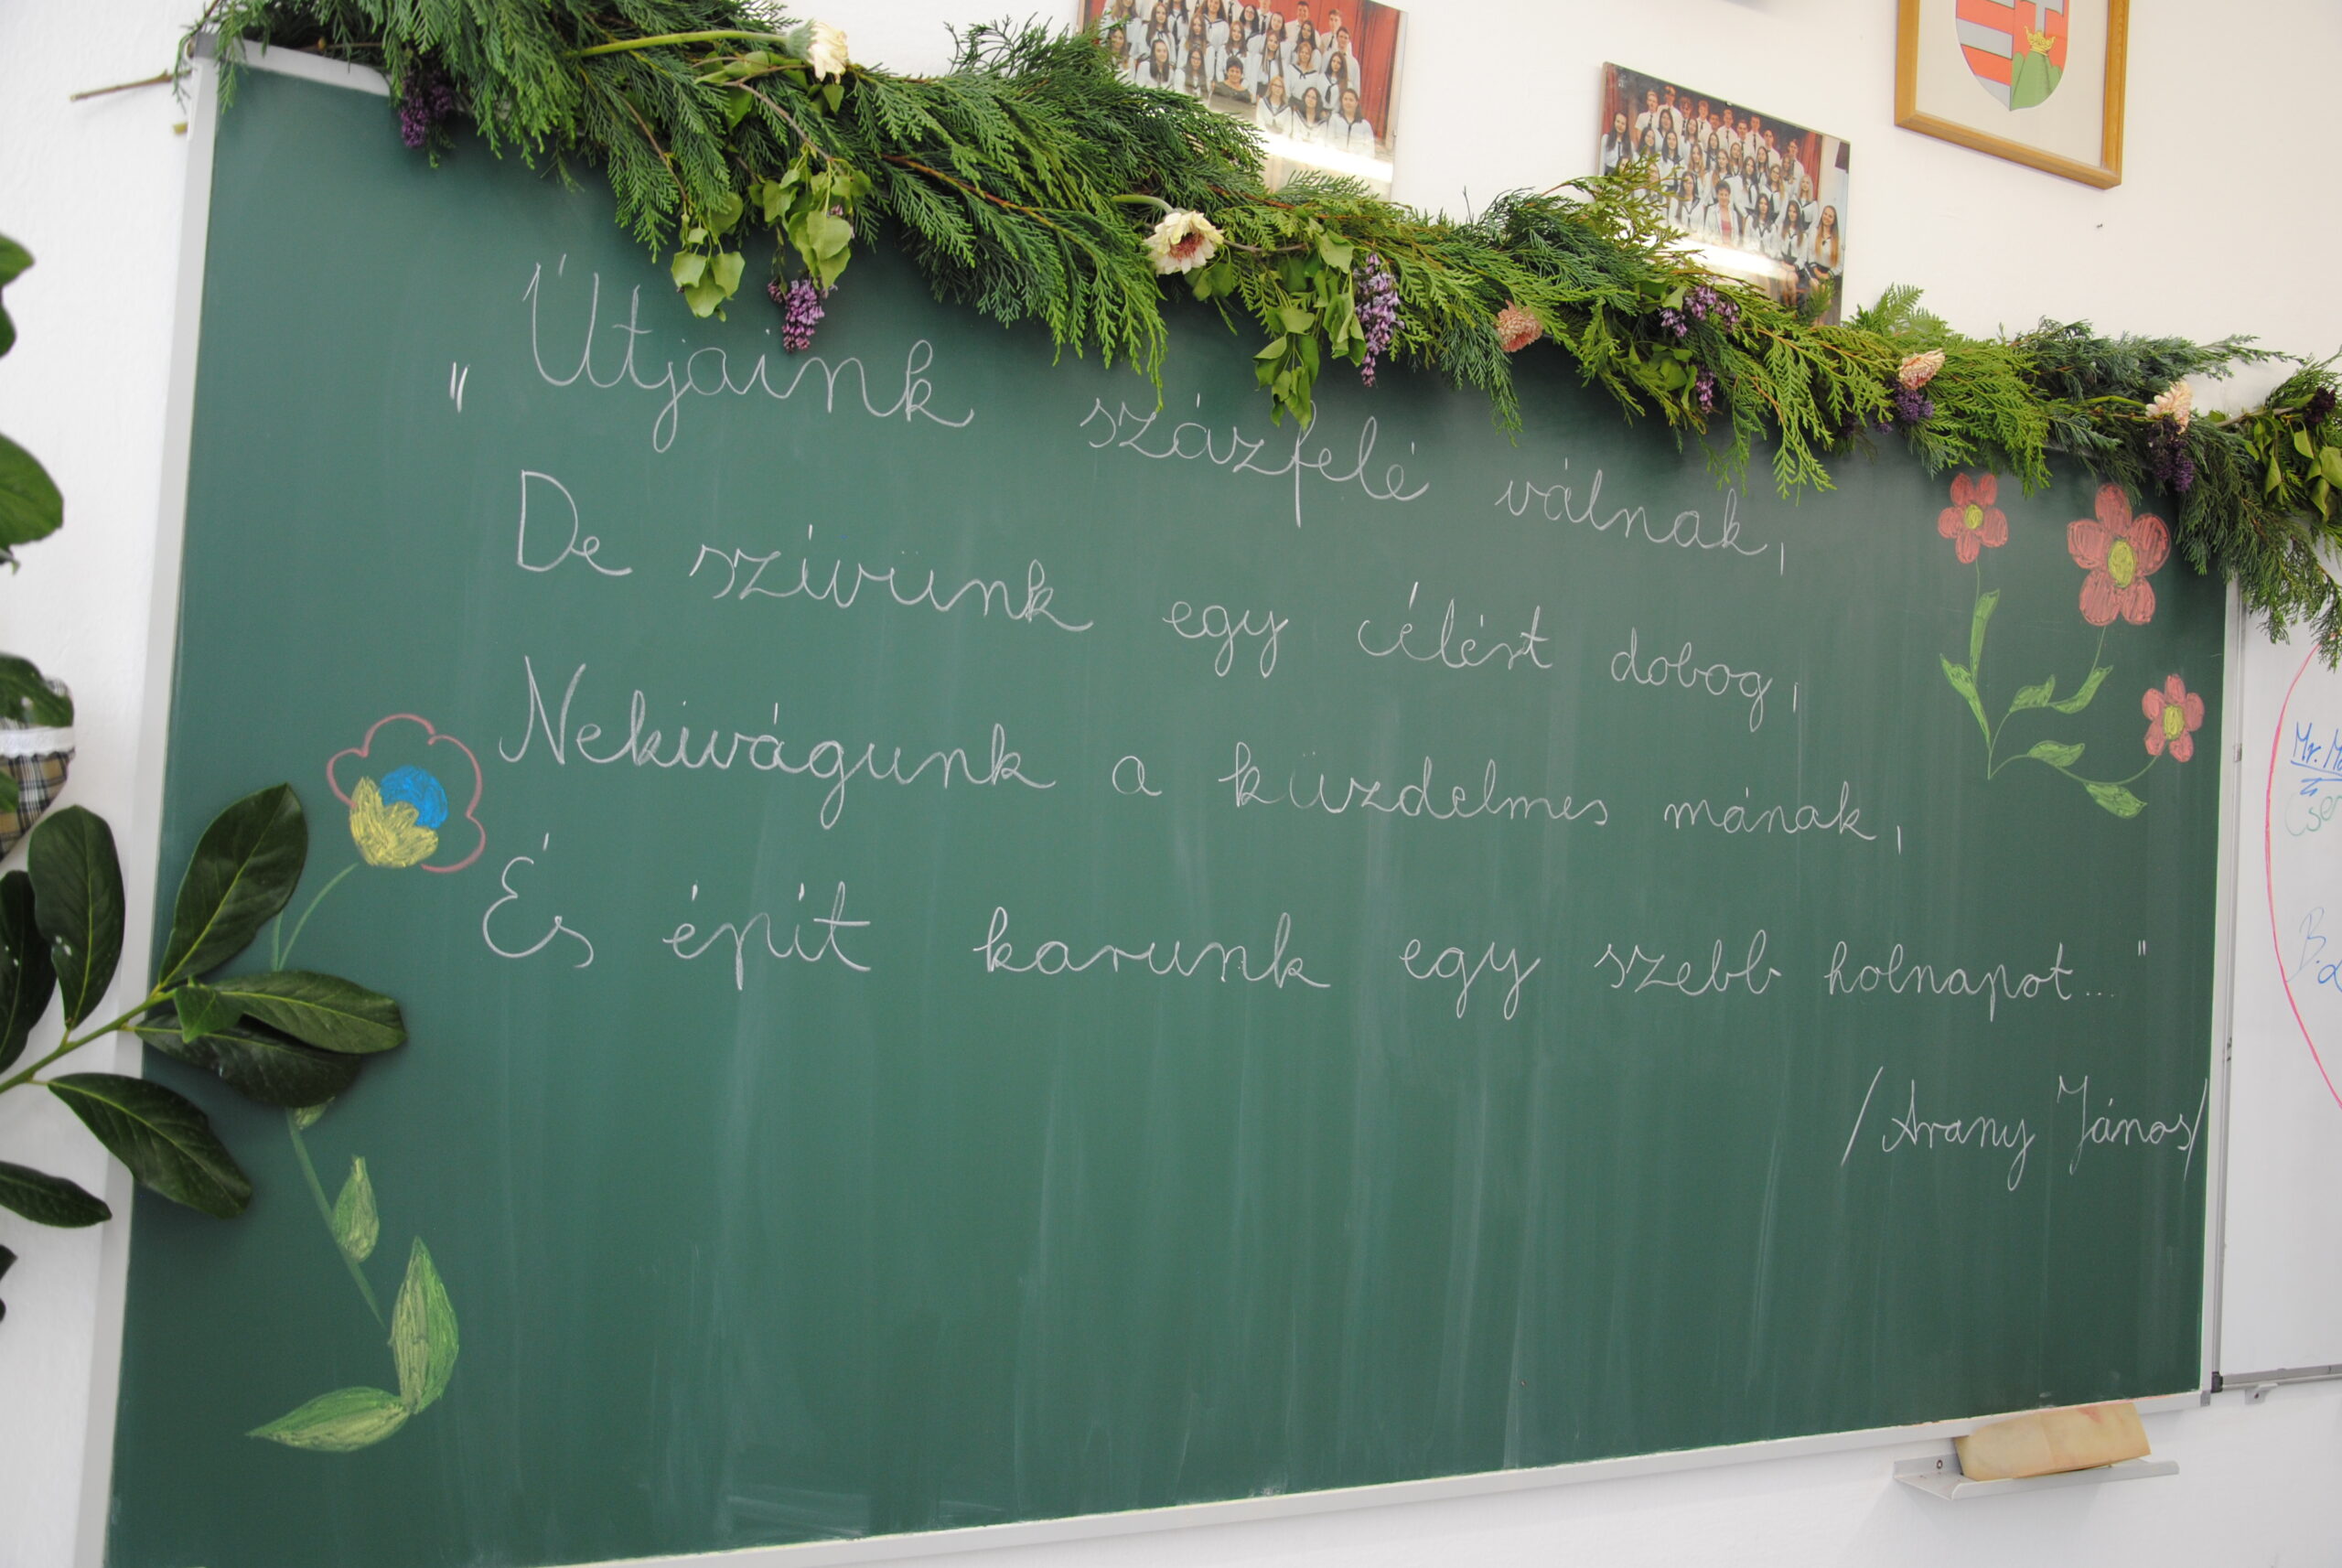 "Útjaink százfelé válnak,
De szívünk egy célért dobog,
Nekivágunk a küzdelmes mának,
És épít karunk egy szebb holnapot..."
/Arany János/